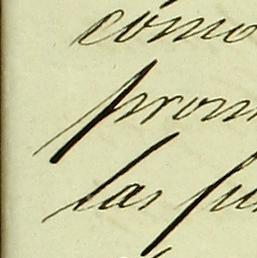 como
pron
las fu